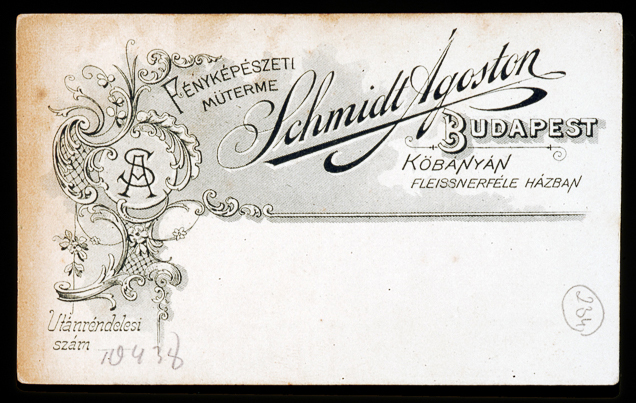 FÉNYKÉPÉSZETI
MŰTERME
Schmidt Ágoston
BUDAPEST
KŐBÁNYÁN
FLEISSNERFÉLE HÁZBAN
SA
Utánrendelesi
szám
234